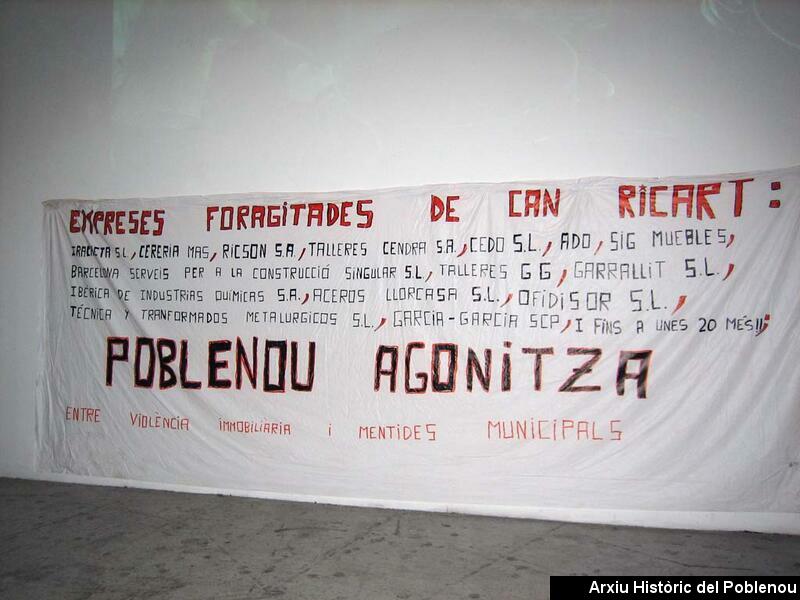 EMPRESES FORAGITADES DE CAN RICART:
IRACICTA S.L., CERERIA MAS, RICSON S.A., TALLERES CENDRA S.A., CEDO S.L., ADO, SIG MUEBLES,
BARCELONA SERVEIS PER A LA CONSTRUCCIÓ SINGULAR S.L., TALLERES G G, GARRALLIT S.L.,
IBÉRICA DE INDUSTRIAS QUÍMICAS S.A., ACEROS LLORCASA S.L., OFIDISOR S.L.,
TÉCNICA Y TRANFORMADOS METALURGICOS S.L., GARCIA-GARCIA SCP, I FINS A UNES 20 MÉS!!;
POBLENOU AGONITZA
ENTRE VIOLÈNCIA IMMOBILIÀRIA I MENTIDES MUNICIPALS
Arxiu Històric del Poblenou